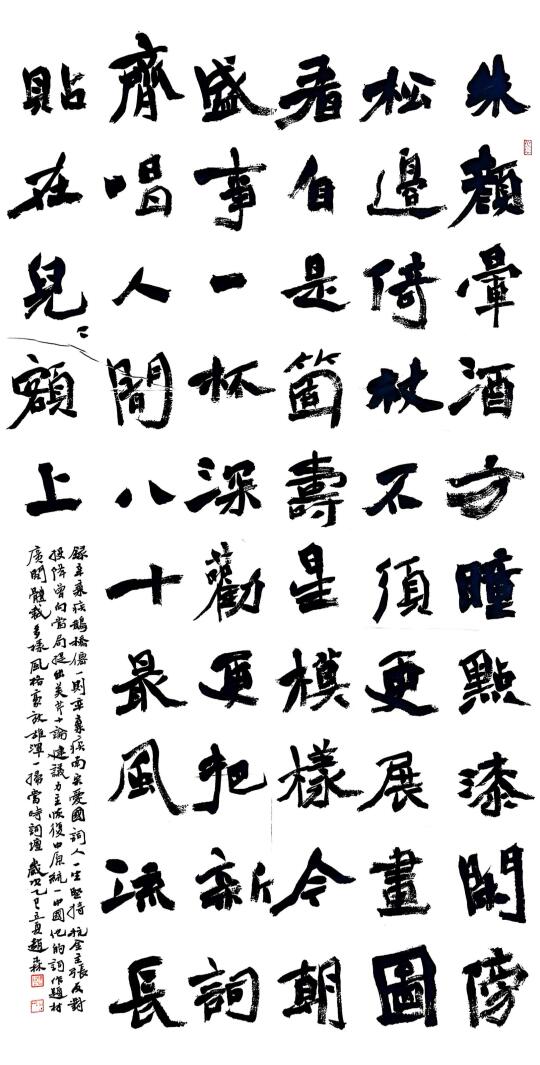 朱顏暈酒方瞳點漆閒傍
松邊倚杖不須更展畫圖
看自是箇壽星模樣今朝
盛事一杯深勸更把新詞
齊唱人間八十最風流長
貼在兒〻額上
錄辛棄疾鵲橋僊一則辛棄疾南宋愛國詞人一生堅持抗金主張反對
投降曾向當局提出美芹十論建議力主恢復中原統一中國他的詞作題材
廣闊體裁多樣風格豪放雄渾一掃當時詞壇 歲次乙巳立夏趙森